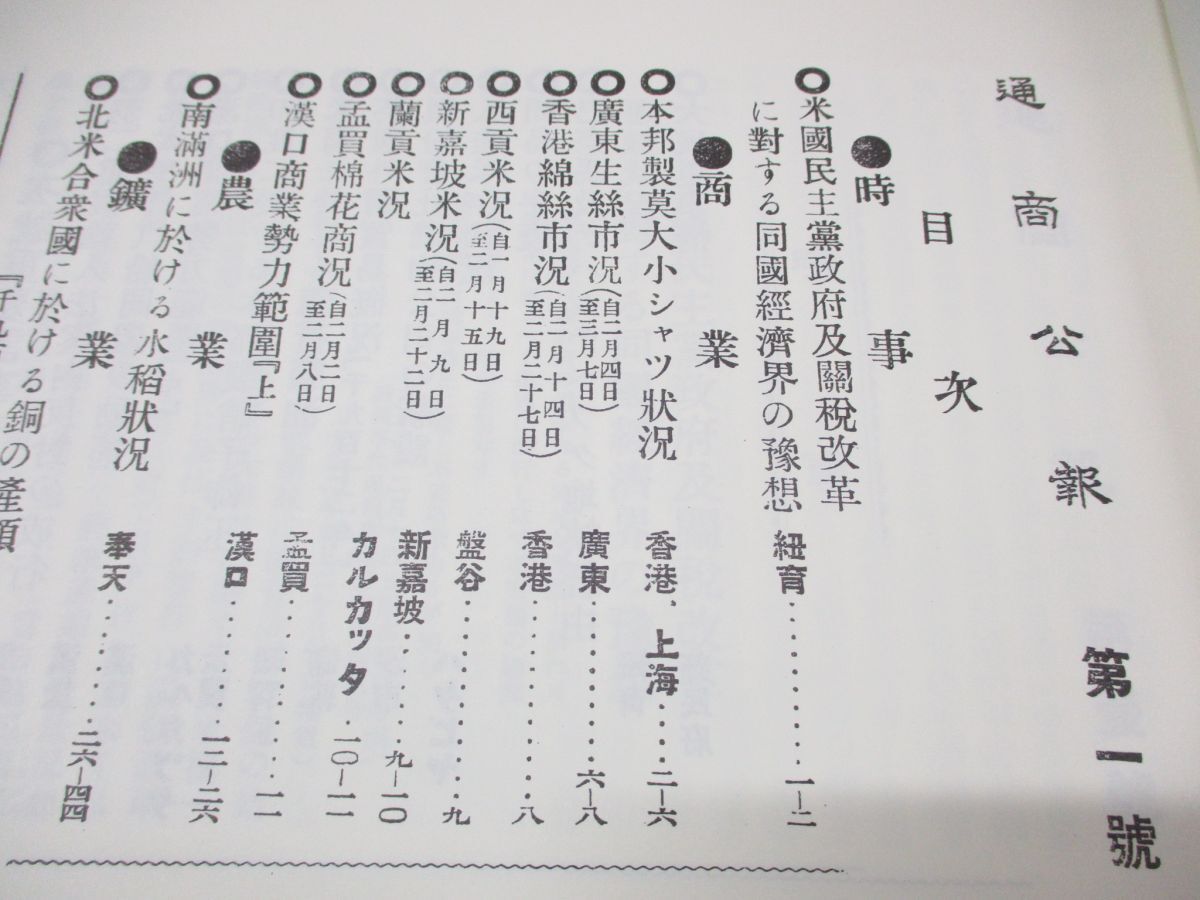 通商公報 第一號
目次
●時事
○米國民主黨政府及關稅改革
に對する同國經濟界の豫想 紐育………一—二
●商業
○本邦製莫大小シャツ狀況 香港、上海……二—六
○廣東生絲市況(自二月四日至三月七日) 廣東………六—八
○香港綿絲市況(自二月十四日至二月二十七日) 香港………八
○西貢米況(自一月十九日至二月十五日) 盤谷………九
○新嘉坡米況(自二月九日至二月二十二日) 新嘉坡……九—一〇
○蘭貢米況 カルカッタ…一〇—一一
○孟買棉花商況(自二月二日至二月八日) 孟買………一一
○漢口商業勢力範圍『上』 漢口………一二—二六
●農業
○南滿洲に於ける水稻狀況 奉天………二六—四四
●鑛業
○北米合衆國に於ける銅の產額